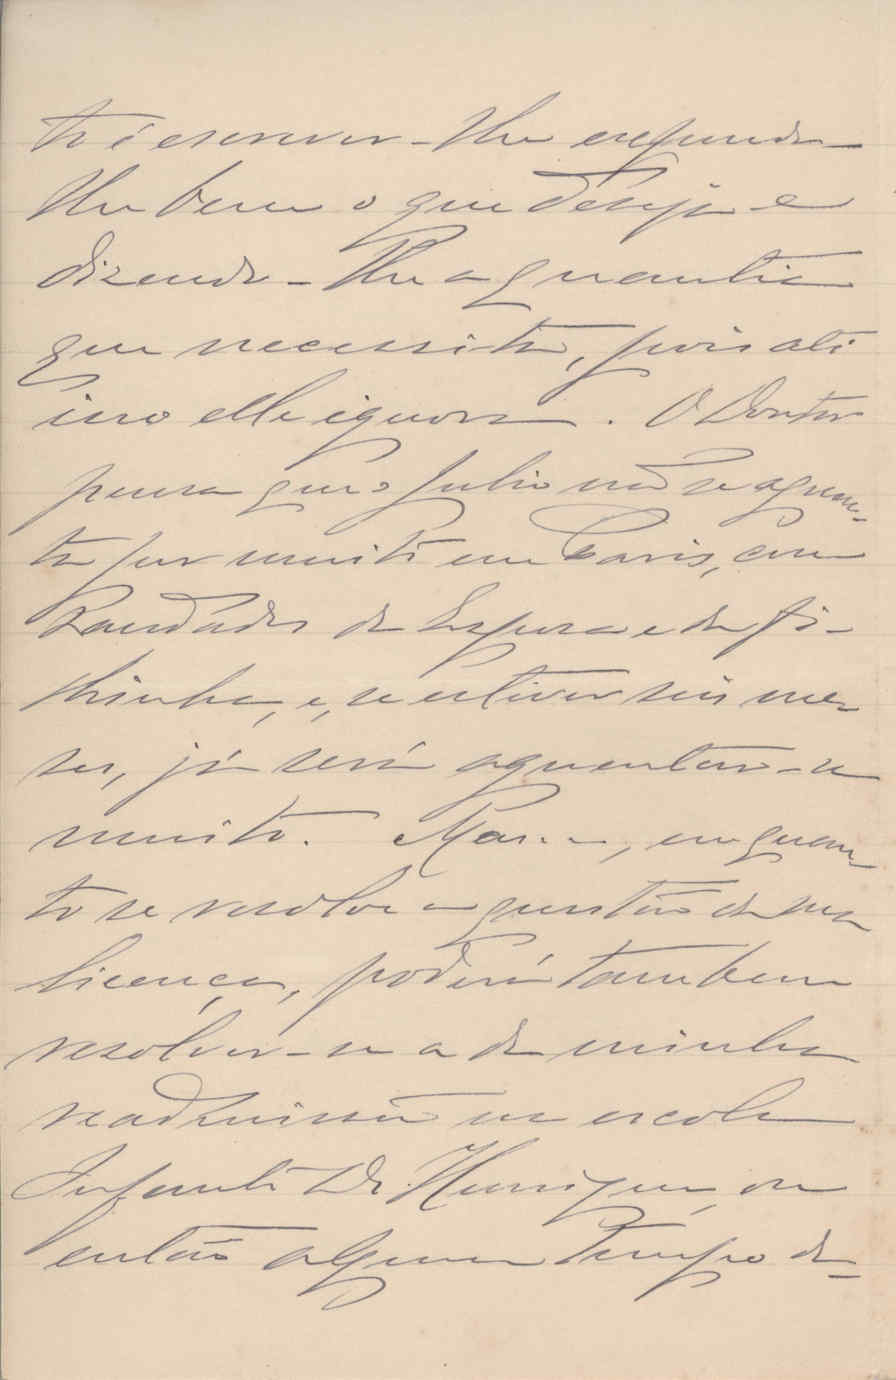 to é escrever-lhe expondo-
lhe bem o que deseja e
dizendo-lhe a quantia
que necessita, pois até
isso elle ignora. O Doutor
pensa que o Julio não se aguen-
ta por muito em Paris, com
saudades da Esposa e da fi-
lhinha, e, se estiver seis me-
ses, já será aguentar-se
muito. Mas..., emquan-
to se resolve a questão da sua
licença, poderá tambem
resolver-se a da minha
readmissão na escola
Infante D. Henrique, ou
então algum tempo de-